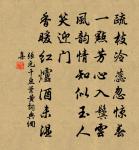 疏枝冷蕊忽驚春
一點芳心入鬢雲
風韻情知似玉人
笑迎門
香暖紅爐酒未溫
張元干豆葉黃